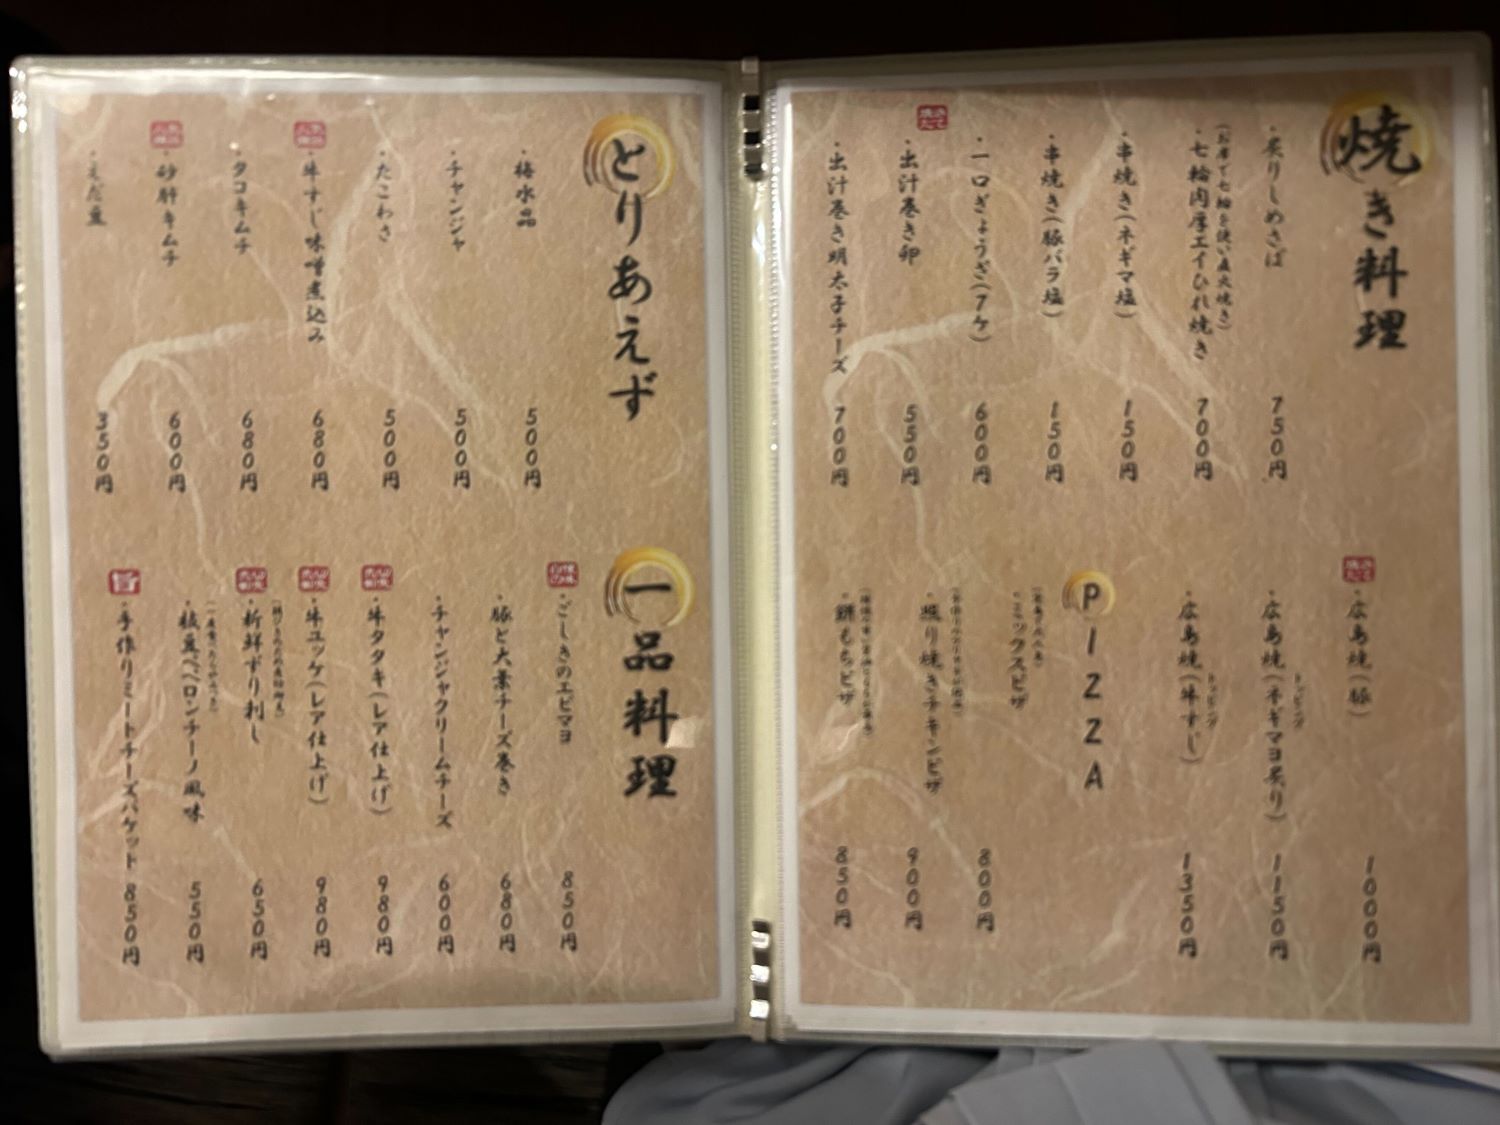 焼き料理
・炙りしめさば 750円
(お席で七輪を使い直火焼き)
・七輪肉厚エイひれ焼き 700円
・串焼き(ネギマ塩) 150円
・串焼き(豚バラ塩) 150円
・一口ぎょうざ(7ケ) 600円
・出汁巻き卵 550円
・出汁巻き明太子チーズ 700円
・広島焼(豚) 1000円
トッピング
・広島焼(ネギマヨ炙り) 1150円
トッピング
・広島焼(牛すじ) 1350円
PIZZA
・ミックスピザ 800円
・照り焼きチキンピザ 900円
・餅もちピザ 850円
とりあえず
・梅水晶 500円
・チャンジャ 500円
・たこわさ 500円
・牛すじ味噌煮込み 680円
・タコキムチ 680円
・砂肝キムチ 600円
・えだ豆 350円
一品料理
・ごしきのエビマヨ 850円
・豚と大葉チーズ巻き 680円
・チャンジャクリームチーズ 600円
・牛タタキ(レア仕上げ) 980円
・牛ユッケ(レア仕上げ) 980円
・新鮮ずり刺し 650円
・枝豆ペペロンチーノ風味 550円
旨
・手作りミートチーズバケット 850円